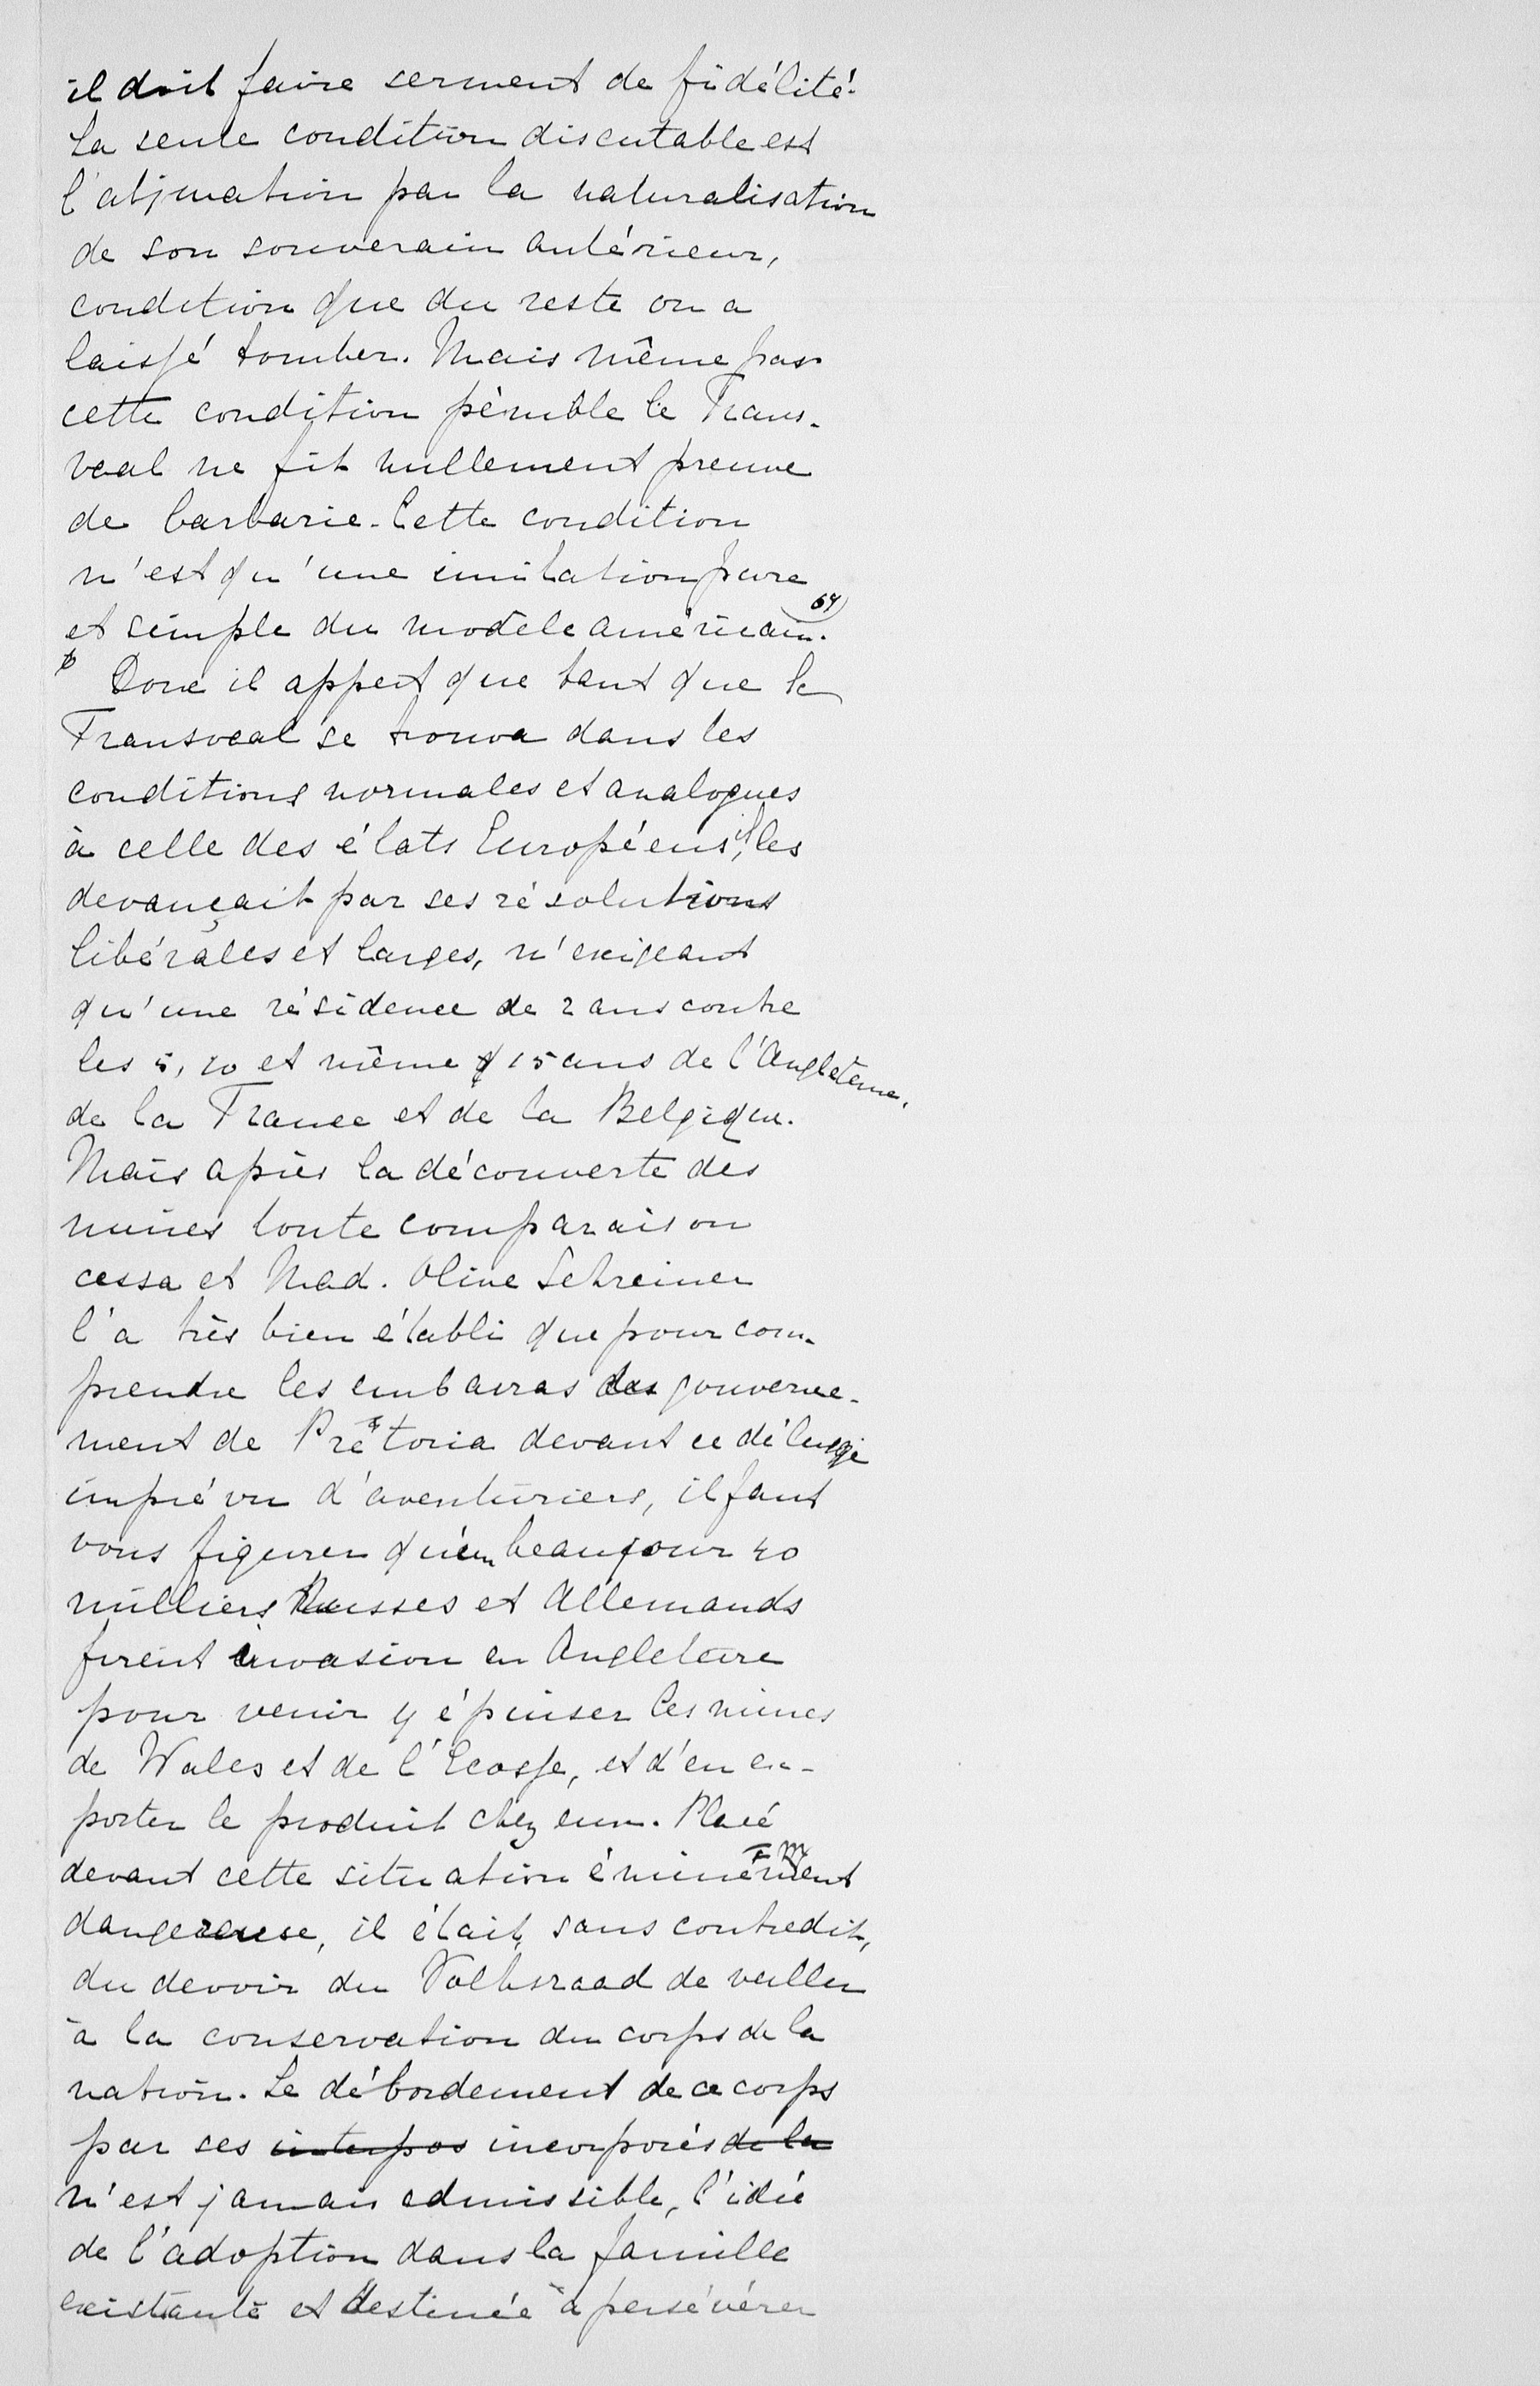 il doit faire serment de fidélité.
La seule condition discutable est
l'abjuration par la naturalisation
de son souverain antérieur,
condition que du reste on a
laissé tomber. Mais même par
cette condition pénible le Trans-
vaal ne fit nullement preuve
de barbarie. Cette condition
n'est qu'une imitation pure
et simple du modèle américain. 64)
Donc il appert que tant que le
Transvaal se trouva dans les
conditions normales et analogues
à celle des états Européens, il les
devançait par ses résolutions
libérales et larges, n'exigeant
qu'une résidence de 2 ans contre
les 5, 10 et même 15 ans de l'Angleterre,
de la France et de la Belgique.
Mais après la découverte des
mines toute comparaison
cessa et Mad. Olive Schreiner
l'a très bien établi que pour com-
prendre les embarras des gouverne-
ment de Pretoria devant ce déluge
imprévu d'aventuriers, il faut
vous figurer qu'un beau jour 40
milliers Russes et Allemands
firent invasion en Angleterre
pour venir y épuiser les mines
de Wales et de l'Ecosse, et d'en em-
porter le produit chez eux. Placé
devant cette situation éminemment
dangereuse, il était, sans contredit,
du devoir du Volksraad de veiller
à la conservation du corps de la
nation. Le débordement de ce corps
par ses interpos incorporés de la
n'est jamais admissible, l'idée
de l'adoption dans la famille
existante et destinée à persévérer